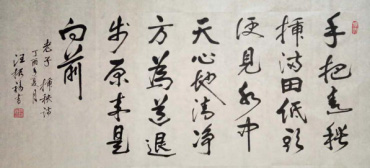 手把青秧
插满田低头
便見水中
天心地清净
方為道退
步原来是
向前
老子 插秧诗
丁酉年夏月
汪 书